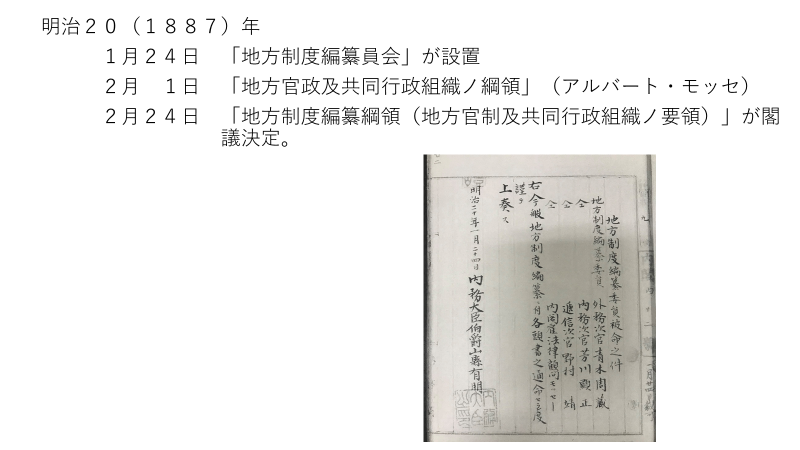 明治２０（１８８７）年
１月２４日　「地方制度編纂員会」が設置
２月　１日　「地方官政及共同行政組織ノ綱領」（アルバート・モッセ）
２月２４日　「地方制度編纂綱領（地方官制及共同行政組織ノ要領）」が閣
議決定。
地方制度編纂委員被命之件
地方制度編纂委員　外務次官青木周蔵
仝　内務次官芳川顕正
仝　逓信次官野村　靖
仝　内閣雇法律顧問モッセー
右今般地方制度編纂ニ付各頭書之通命セラレ度
謹テ
上奏ス
明治二十年一月二十四日　内務大臣伯爵山縣有朋